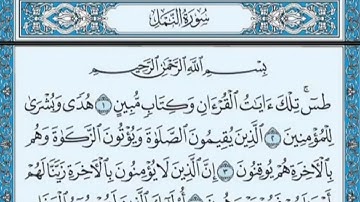 سُورَةُ النَّمْلِ
بِسْمِ اللَّهِ الرَّحْمَٰنِ الرَّحِيمِ
طسٓ ۚ تِلْكَ ءَايَٰتُ الْقُرْءَانِ وَكِتَابٍ مُّبِينٍ ١ هُدًى وَبُشْرَىٰ
لِلْمُؤْمِنِينَ ٢ الَّذِينَ يُقِيمُونَ الصَّلَوٰةَ وَيُؤْتُونَ الزَّكَوٰةَ وَهُم
بِالْءَاخِرَةِ هُمْ يُوقِنُونَ ٣ إِنَّ الَّذِينَ لَا يُؤْمِنُونَ بِالْءَاخِرَةِ زَيَّنَّا لَهُمْ